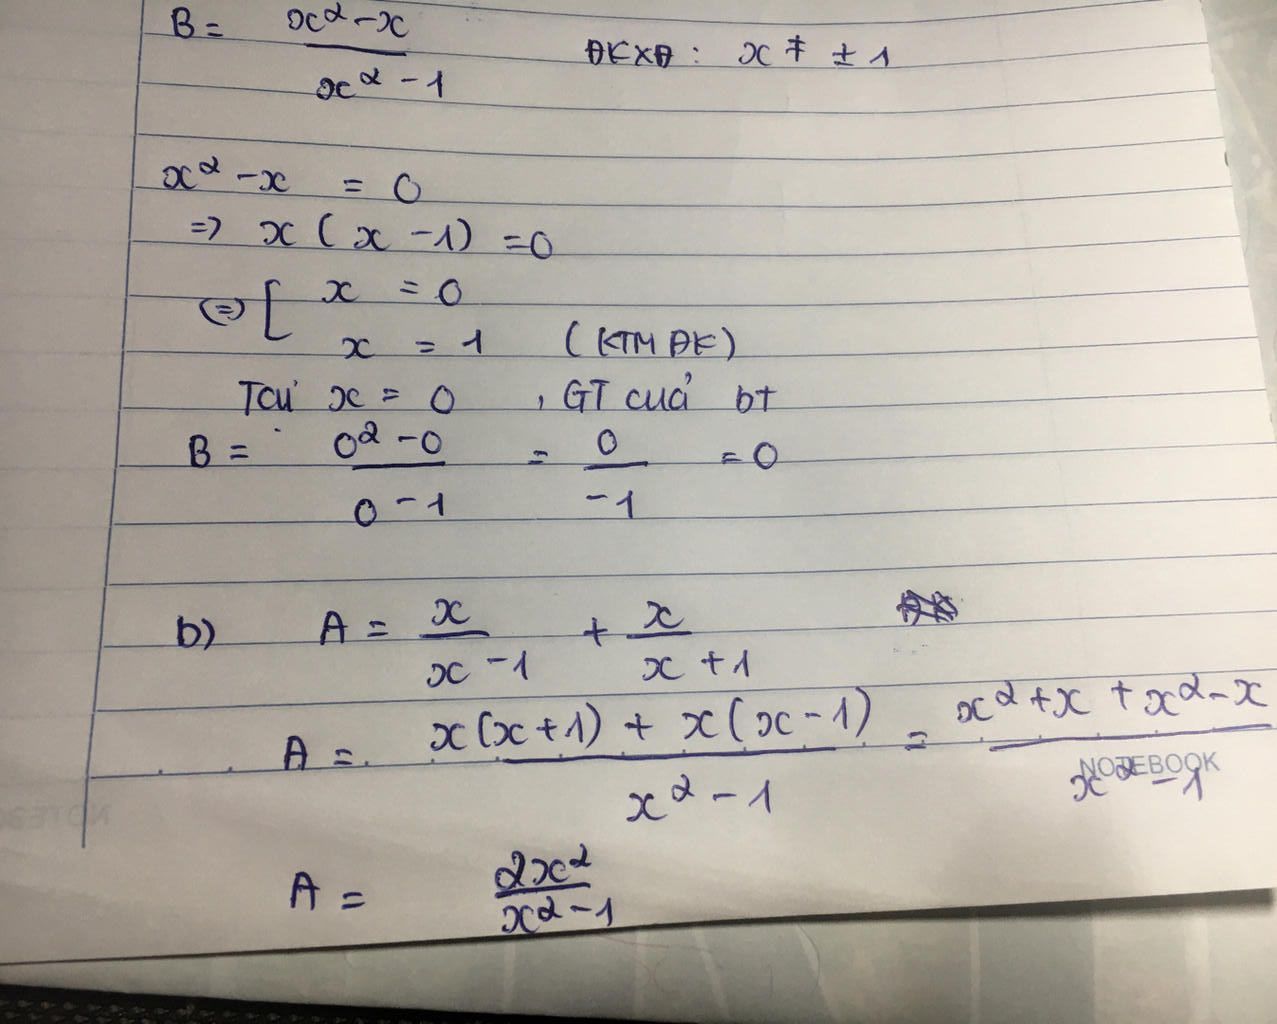 B = x² - x / x² - 1 ĐKXĐ : x ≠ ± 1
x² - x = 0
=> x ( x - 1 ) = 0
<=> [ x = 0
x = 1 (KTM ĐK)
Tại x = 0 , GT của bt
B = 0² - 0 / 0 - 1 = 0 / -1 = 0
b) A = x / x - 1 + x / x + 1
A = x(x+1) + x(x-1) / x² - 1 = x² + x + x² - x / x² - 1
NOTEBOOK
A = 2x² / x² - 1